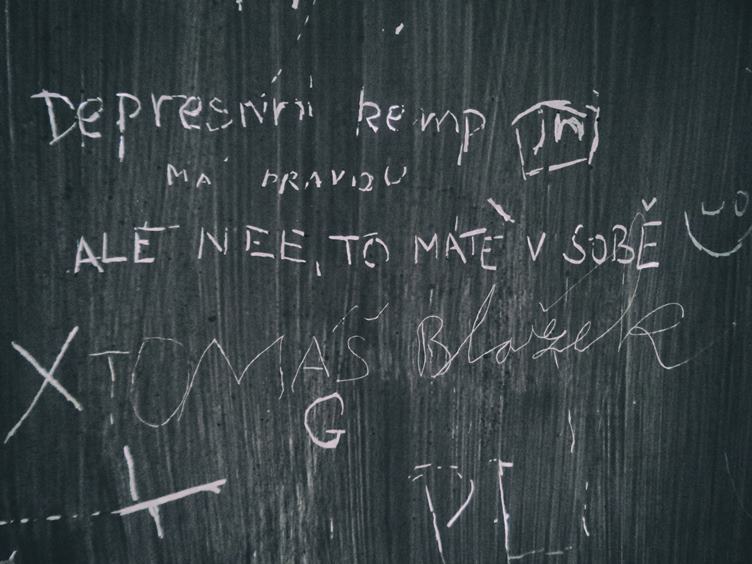 Depresivní kemp jmj
MÁ PRAVDU
ALE NEE, TO MÁTE V SOBĚ
X TOMÁŠ Blažek
G